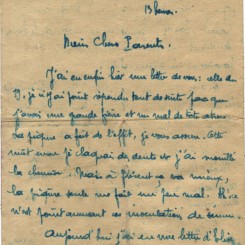 13 heures.
Mes Chers Parents.
J'ai eu enfin hier une lettre de vous : celle du
19. je n'ai point répondu tout de suite parce que
j'avais une grande fièvre et un mal de tête atroce
La piqûre a fait de l'effet, je vous assure. Cette
nuit encore je claquais des dents et j'ai mouillé
la chemise. Mais à présent ça va mieux,
la piqûre seule me fait un peu mal. Ce
n'est point amusant ces inoculations de
Aujourd'hui j'ai eu une lettre d'